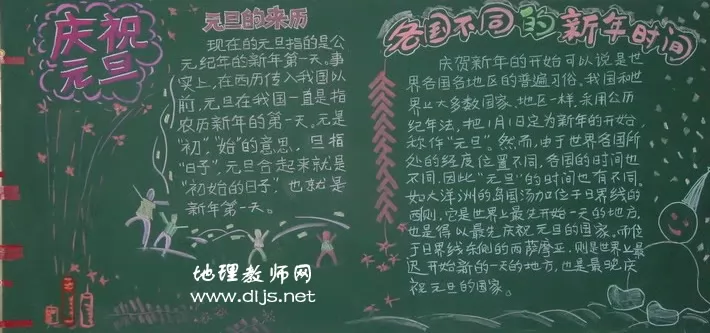 庆祝
元旦
元旦的来历
现在的元旦指的是公
元纪年的新年第一天。事
实上,在西历传入我国以
前,元旦在我国一直是指
农历新年的第一天。元是
“初”、“始”的意思,旦指
“日子”,元旦合起来就是
“初始的日子”也就是
新年第一天。
各国不同的新年时间
庆贺新年的开始可以说是世
界各国各地区的普遍习俗。我国和世
界上大多数国家、地区一样,采用公历
纪年法,把1月1日定为新年的开始,
称作“元旦”。然而,由于世界各国所
处的经度位置不同,各国的时间也
不同,因此“元旦”的时间也有不同。
如大洋洲的岛国汤加位于日界线的
西侧,它是世界上最先开始一天的地方,
也是得以最先庆祝元旦的国家。而位
于日界线东侧的西萨摩亚,则是世界上最
迟开始新的一天的地方,也是最晚庆
祝元旦的国家。
地理教师网
www.dljs.net